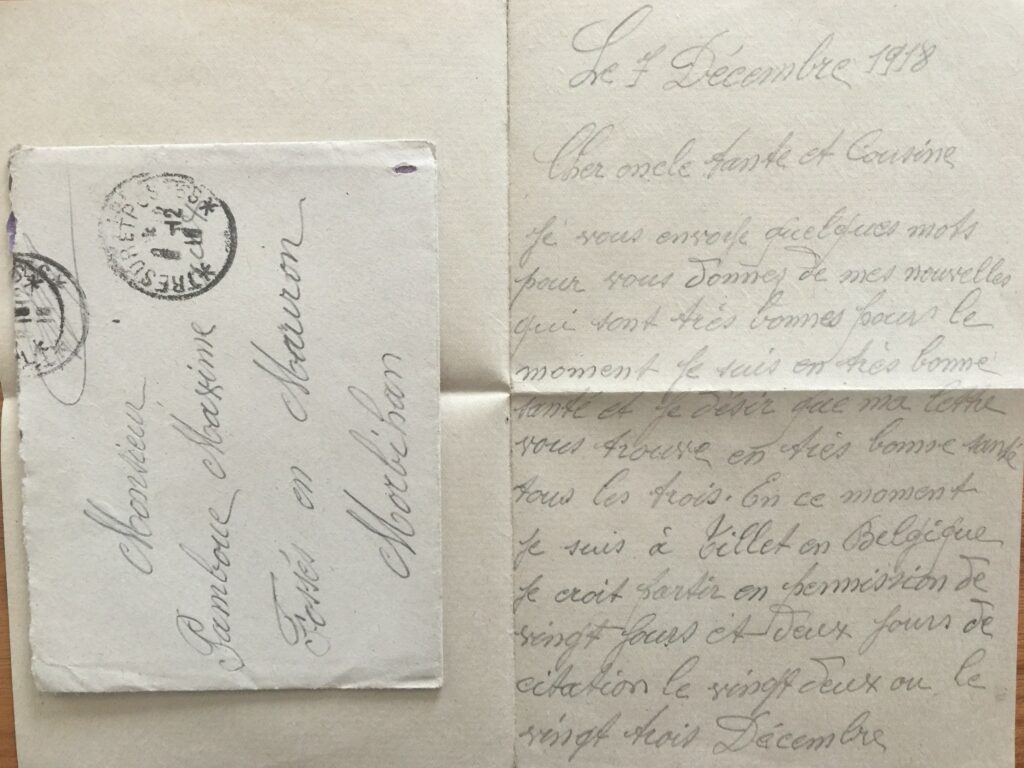 Le 7 Décembre 1918
Cher oncle tante et Cousine
Je vous envoye quelques mots
pour vous donnez de mes nouvelles
qui sont très bonnes pours le
moment je suis en très bonne
santé et je désir que ma lettre
vous trouve en très bonne santé
tous les trois. En ce moment
je suis à Tillet en Belgique
je croit partir en permission de
vingt jours et deux jours de
citation le vingt deux ou le
vingt trois Décembre
Monsieur
Pamboue Maxime
Fossés en Mauron
Morbihan
TRESOR ET POSTES